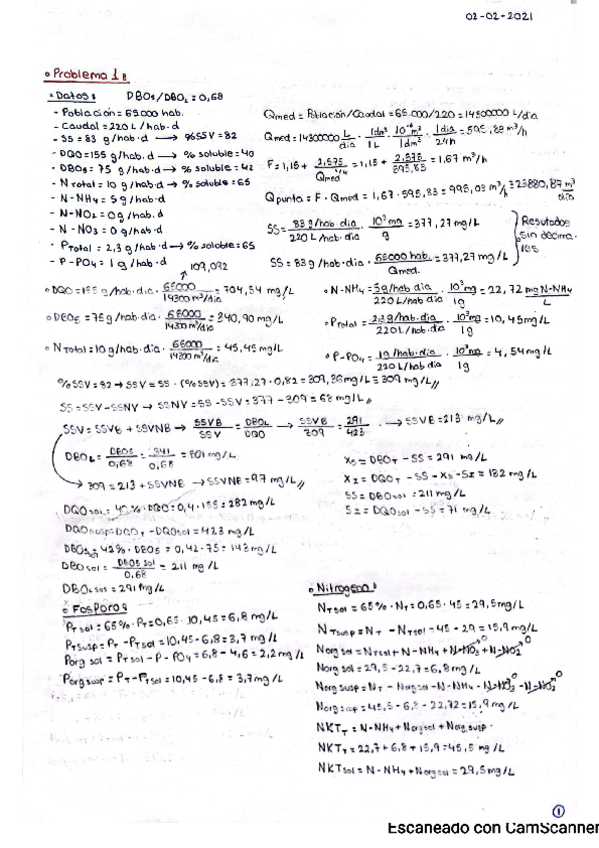 02-02-2021
• Problema 1:
• Datos: DBO5/DBOL = 0,68
- Población = 65000 hab.
- Caudal = 220 L/hab·d
- SS = 83 g/hab·d → %SSV = 82
- DQO = 155 g/hab·d → % soluble = 40
- DBO5 = 75 g/hab·d → % soluble = 42
- N Total = 10 g/hab·d → % soluble = 65
- N-NH4 = 5 g/hab·d
- N-NO2 = 0 g/hab·d
- N-NO3 = 0 g/hab·d
- PTotal = 2,3 g/hab·d → % soluble = 65
- P-PO4 = 1 g/hab·d
Qmed = Población/Caudal = 65.000/220 = 14300000 L/día
Qmed = 14300000 L/día · 1dm³/1L · 10⁻³m³/1dm³ · 1día/24h = 595,83 m³/h
F = 1,15 + 2,575/Qmed = 1,15 + 2,575/595,83 = 1,67 m³/h
Qpunta = F · Qmed = 1,67 · 595,83 = 995,03 m³/h = 23880,87 m³/día
SS = 83 g/hab·día / 220 L/hab·día · 10³mg/g = 377,27 mg/L
SS = 83 g/hab·día · 65000 hab./Qmed. = 377,27 mg/L
Resultados sin decimales
109,092
• DQO = 155 g/hab·día · 65000/14300 m³/día = 704,54 mg/L
• DBO5 = 75 g/hab·día · 65000/14300 m³/día = 340,90 mg/L
• N Total = 10 g/hab·día · 65000/14300 m³/día = 45,45 mg/L
• N-NH4 = 5g/hab·día / 220 L/hab·día · 10³mg/1g = 22,72 mg N-NH4/L
• PTotal = 2,3g/hab·día / 220 L/hab·día · 10³mg/1g = 10,45 mg/L
• P-PO4 = 1g/hab·día / 220 L/hab·día · 10³mg/1g = 4,54 mg/L
%SSV = 82 → SSV = SS · (%SSV) = 377,27 · 0,82 = 309,36 mg/L = 309 mg/L
SS = SSV - SSNV → SSNV = SS - SSV = 377 - 309 = 68 mg/L
SSV = SSVB + SSVNB → SSVB/SSV = DBOL/DQO → SSVB/309 = 291/423 → SSVB = 213 mg/L
DBOL = DBO5/0,68 = 341/0,68 = 501 mg/L
309 = 213 + SSVNB → SSVNB = 97 mg/L
XS = DBOT - SS = 291 mg/L
XI = DQOT - SS - XS - SI = 132 mg/L
SS = DBOsol = 211 mg/L
SI = DQOsol - SS = 71 mg/L
DQOsol = 40% · DQO = 0,4 · 155 = 282 mg/L
DQOsusp = DQOT - DQOsol = 423 mg/L
DBO5 = 42% · DBO5 = 0,42 · 75 = 143 mg/L
DBOsol = DBO5 sol/0,68 = 211 mg/L
DBOL sus = 291 mg/L
• Fósforo:
PTsol = 65% · PT = 0,65 · 10,45 = 6,8 mg/L
PTsusp = PT - PTsol = 10,45 - 6,8 = 3,7 mg/L
Porg sol = PTsol - P-PO4 = 6,8 - 4,6 = 2,2 mg/L
Porg susp = PT - PTsol = 10,45 - 6,8 = 3,7 mg/L
• Nitrógeno:
NTsol = 65% · NT = 0,65 · 45 = 29,5 mg/L
NTsusp = NT - NTsol = 45 - 29 = 15,9 mg/L
Norg sol = NTsol + N-NH4 + N-NO3 + N-NO2
Norg sol = 29,5 - 22,7 = 6,8 mg/L
Norg susp = NT - Norg sol - N-NH4 - N-NO3 - N-NO2
Norg susp = 45,5 - 6,8 - 22,72 = 15,9 mg/L
NKTT = N-NH4 + Norg sol + Norg susp
NKTT = 22,7 + 6,8 + 15,9 = 45,5 mg/L
NKTsol = N-NH4 + Norg sol = 29,5 mg/L
1
Escaneado con CamScanner